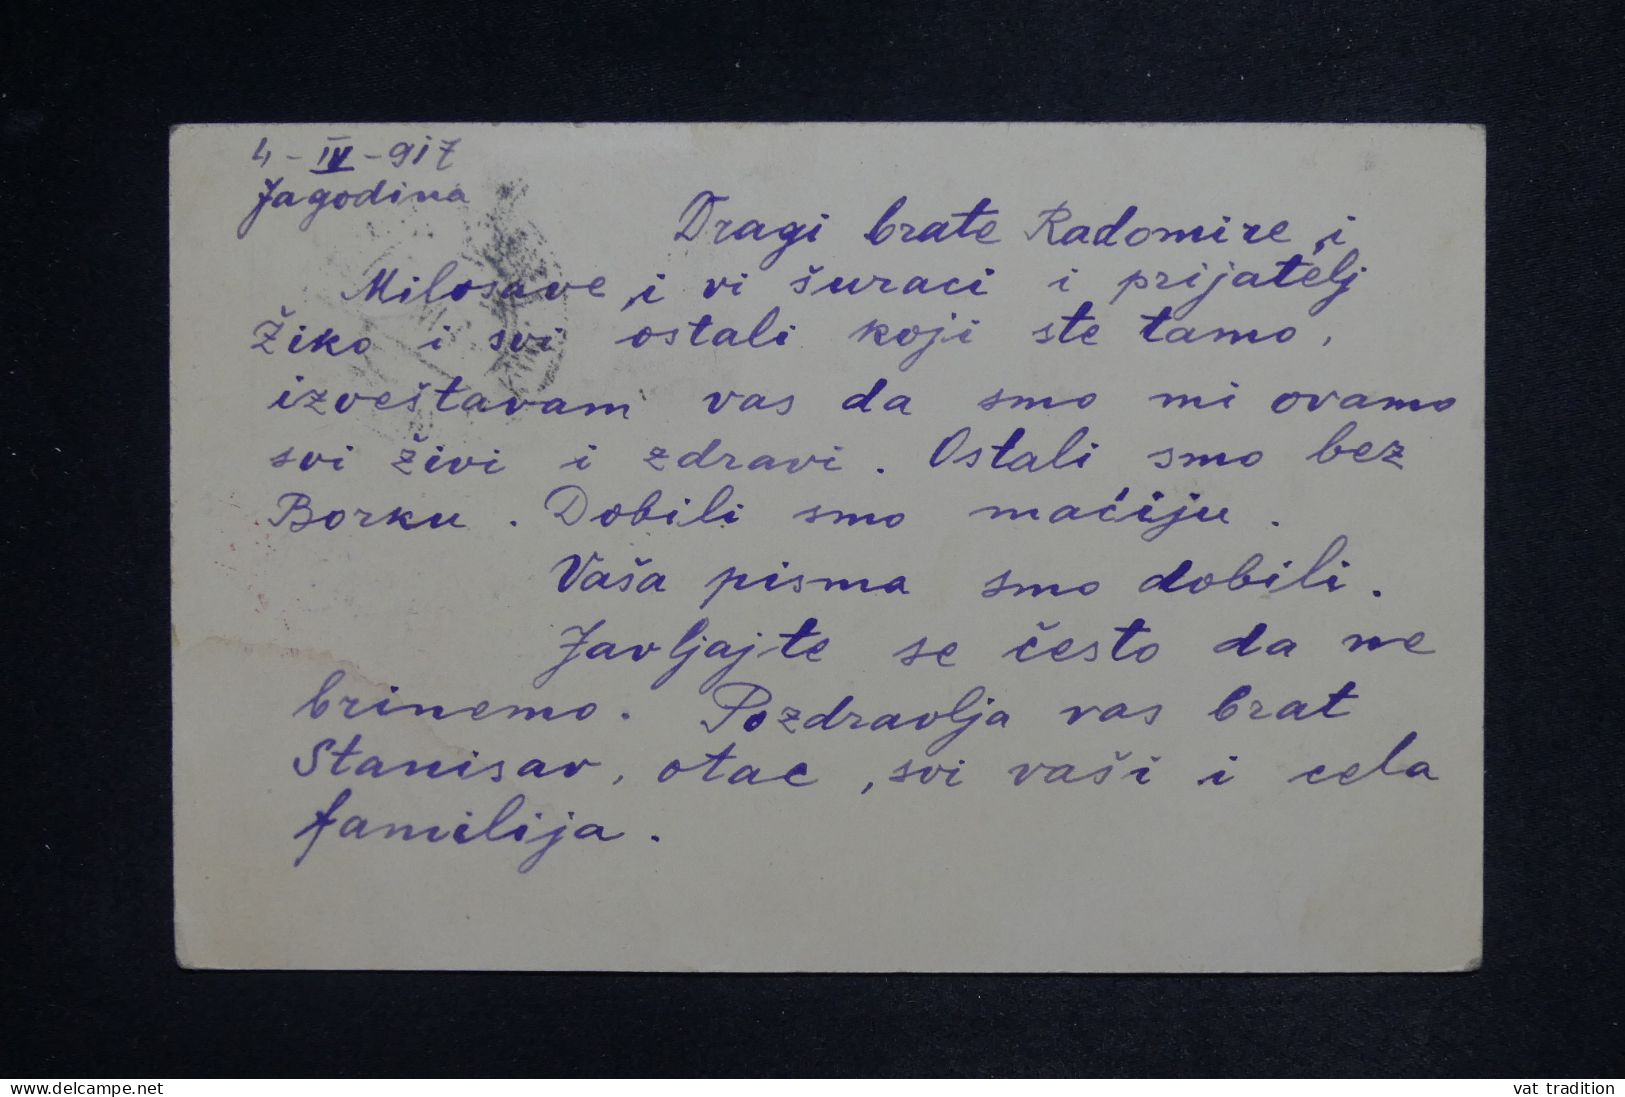 4-IV-917
Jagodina
Dragi brate Radomire, i
Milosave, i vi šuraci i prijatelj
Žiko i svi ostali koji ste tamo,
izveštavam vas da smo mi ovamo
svi živi i zdravi. Ostali smo bez
Borku. Dobili smo maćiju.
Vaša pisma smo dobili.
Javljajte se često da ne
brinemo. Pozdravlja vas brat
Stanisav, otac, svi vaši i cela
familija.
www.delcampe.net
vat tradition